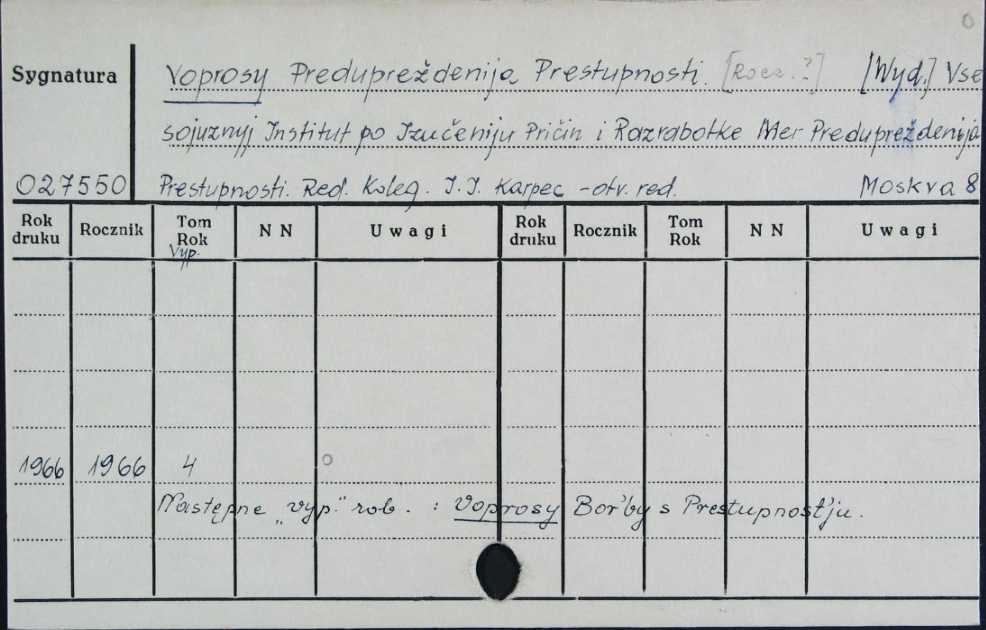 0
Sygnatura
Voprosy Predupreždenija Prestupnosti. [Rocz.?] [Wyd.] Vse
sojuznyj Institut po Izučeniju Pričin i Razrabotke Mer Predupreždenija
027550 Prestupnosti. Red. Koleg. I. I. Karpec - otv. red. Moskva 8
Rok druku Rocznik Tom Rok NN Uwagi Rok druku Rocznik Tom Rok NN Uwagi
Vyp.
1966 1966 4 0
Następne „vyp." rob. : Voprosy Bor'by s Prestupnost'ju.